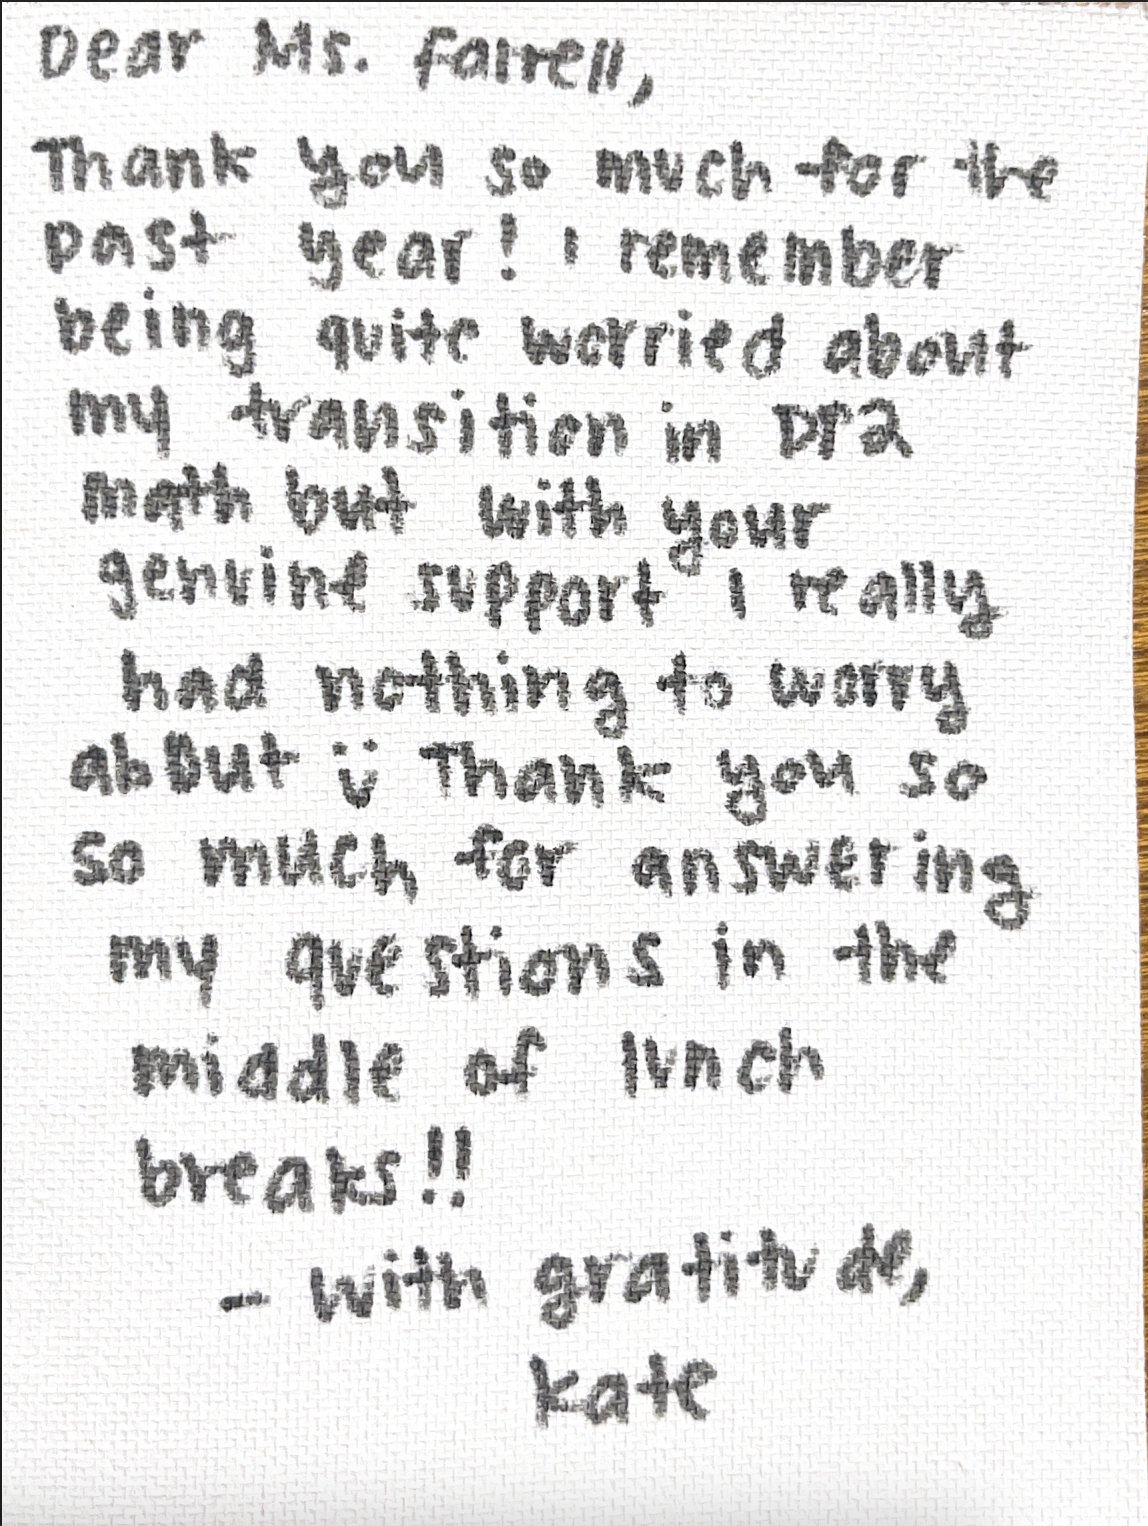 Dear Ms. Farrell,
Thank you so much for the
past year! I remember
being quite worried about
my transition in DP2
math but with your
genuine support I really
had nothing to worry
about ü Thank you so
so much for answering
my questions in the
middle of lunch
breaks!!
- with gratitude,
kate